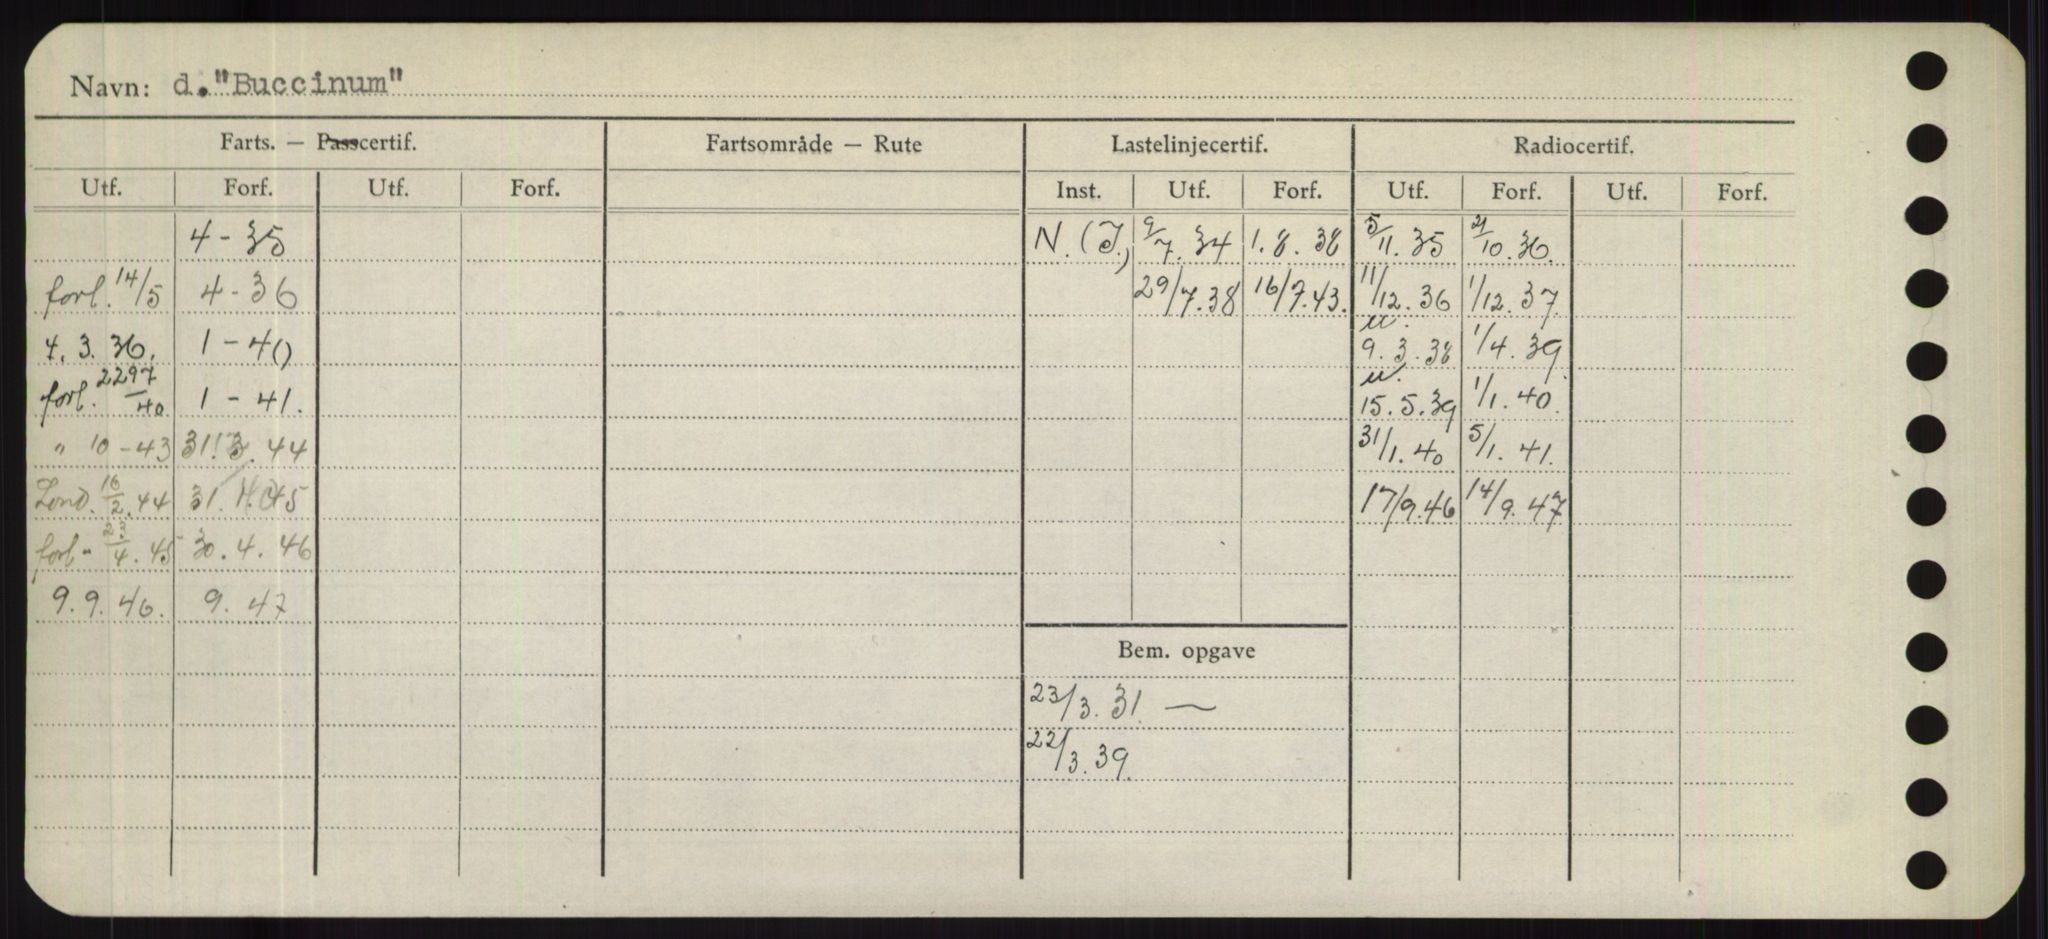 Navn: d. "Buccinum"
Farts. — Passcertif. Fartsområde — Rute Lastelinjecertif. Radiocertif.
Utf. Forf. Utf. Forf. Inst. Utf. Forf. Utf. Forf. Utf. Forf.
4-35 N. (I.) 9/7. 34 1. 8. 38 5/11. 35 21/10. 36.
forl. 14/5 4-36 29/7. 38 16/7. 43. 11/12. 36 1/12. 37.
4. 3. 36. 1-40 u. 9. 3. 38 1/4. 39
forl. 2297/40 1-41. u. 15. 5. 39 1/1. 40.
" 10-43 31. 3. 44 31/1. 40 5/1. 41.
Lond. 16/2. 44 31. 45 17/9. 46 14/9. 47
forl. " 23/4. 45 30. 4. 46
9. 9. 46. 9. 47
Bem. opgave
23/3. 31. —
22/3. 39.